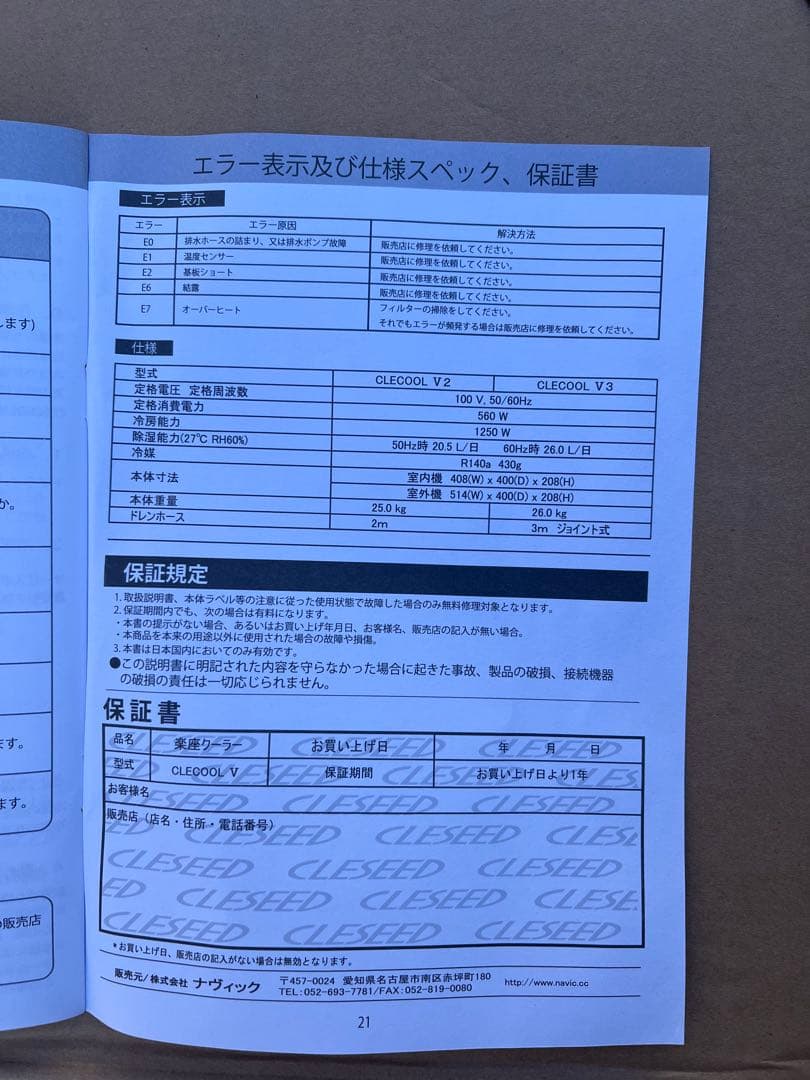 エラー表示及び仕様スペック、保証書
エラー表示
エラー エラー原因 解決方法
E0 排水ホースの詰まり、又は排水ポンプ故障 販売店に修理を依頼してください。
E1 温度センサー 販売店に修理を依頼してください。
E2 基板ショート 販売店に修理を依頼してください。
E6 結露 販売店に修理を依頼してください。
E7 オーバーヒート フィルターの掃除をしてください。
それでもエラーが頻発する場合は販売店に修理を依頼してください。
仕様
型式 CLECOOL V2 CLECOOL V3
定格電圧 定格周波数 100 V, 50/60Hz
定格消費電力 560 W
冷房能力 1250 W
除湿能力(27℃ RH60%) 50Hz時 20.5 L/日 60Hz時 26.0 L/日
冷媒 R140a 430g
本体寸法 室内機 408(W) x 400(D) x 208(H)
室外機 514(W) x 400(D) x 208(H)
本体重量 25.0 kg 26.0 kg
ドレンホース 2m 3m ジョイント式
保証規定
1. 取扱説明書、本体ラベル等の注意に従った使用状態で故障した場合のみ無料修理対象となります。
2. 保証期間内でも、次の場合は有料になります。
・本書の提示がない場合、あるいはお買い上げ年月日、お客様名、販売店の記入が無い場合。
・本商品を本来の用途以外に使用された場合の故障や損傷。
3. 本書は日本国内においてのみ有効です。
●この説明書に明記された内容を守らなかった場合に起きた事故、製品の破損、接続機器
の破損の責任は一切応じられません。
保証書
品名 楽座クーラー お買い上げ日 年 月 日
型式 CLECOOL V 保証期間 お買い上げ日より1年
お客様名
販売店（店名・住所・電話番号）
CLESEED CLESEED CLESEED
CLESEED CLESEED CLESEED
CLESEED CLESEED CLESEED
＊お買い上げ日、販売店の記入がない場合は無効となります。
販売元/株式会社 ナヴィック 〒457-0024 愛知県名古屋市南区赤坪町180 http://www.navic.cc
TEL:052-693-7781/FAX:052-819-0080
21
します)
か。
ます。
ます。
の販売店